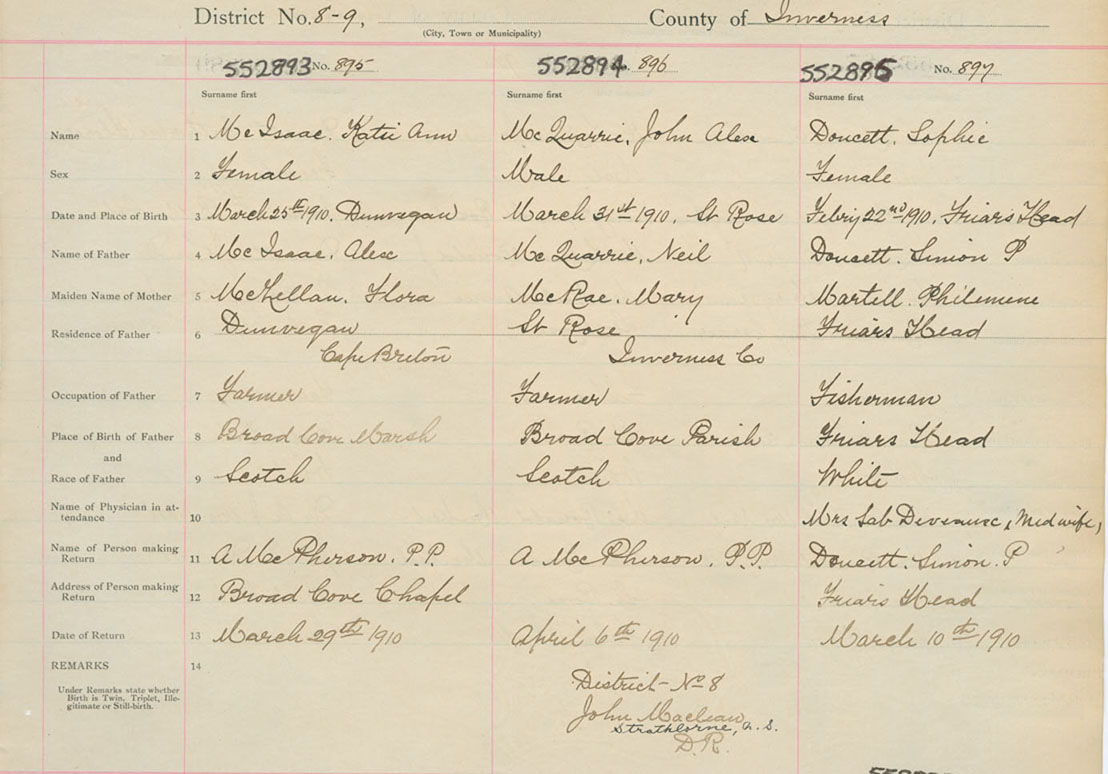 District No. 8-9, County of Inverness
(City, Town or Municipality)
552893 No. 895 552894 896 552895 No. 897
Surname first Surname first Surname first
Name 1 Mc Isaac. Katie Ann Mc Quarrie, John Alex Doucett. Sophie
Sex 2 Female Male Female
Date and Place of Birth 3 March 25th 1910. Dunvegan March 31st 1910, St Rose Febry 22nd 1910, Friars Head
Name of Father 4 Mc Isaac. Alex Mc Quarrie, Neil Doucett. Simon P
Maiden Name of Mother 5 McLellan. Flora McRae. Mary Martell. Philemene
Residence of Father 6 Dunvegan St Rose Friars Head
Cape Breton Inverness Co
Occupation of Father 7 Farmer Farmer Fisherman
Place of Birth of Father 8 Broad Cove Marsh Broad Cove Parish Friars Head
and
Race of Father 9 Scotch Scotch White
Name of Physician in at-
tendance 10 Mrs Sab , Midwife,
Name of Person making
Return 11 A McPherson. P.P. A McPherson. P.P. Doucett. Simon. P
Address of Person making
Return 12 Broad Cove Chapel Friars Head
Date of Return 13 March 29th 1910 April 6th 1910 March 10th 1910
REMARKS 14
Under Remarks state whether
Birth is Twin, Triplet, Ille-
gitimate or Still-birth.
District No 8
John Maclean
Strathlorne, N. S.
D.R.